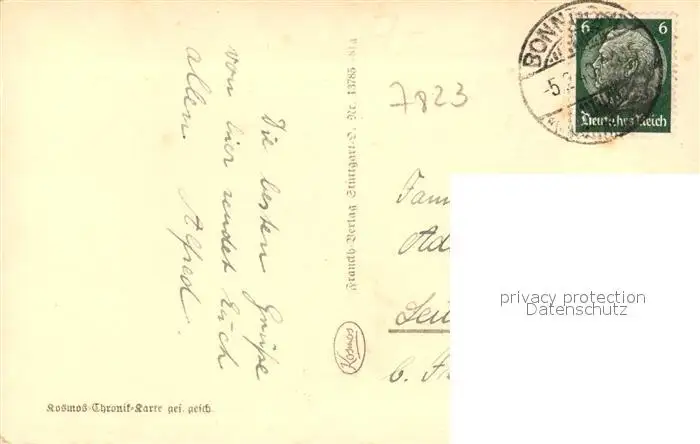 Die besten Grüße
von hier sendet Euch
allen Alfred.
Kosmos-Chronik-Karte ges. gesch.
Franckh-Verlag Stuttgart-O. Nr. 13785
Kosmos
7823
BONN
-5.2
6 6
Deutsches Reich
Fam
Ad
b. Fr
privacy protection
Datenschutz